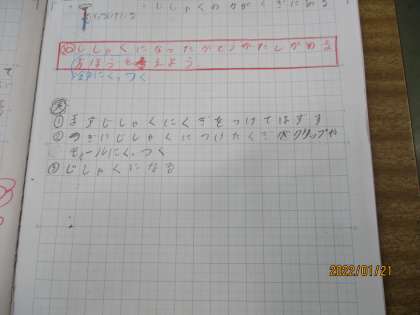 じしゃくの力がくぎにある
め じしゃくになったかどうかたしかめる
ほうほうを考えよう。
①まずじしゃくにくぎをつけてはずす
②つぎにじしゃくにつけたくぎがクリップや
モールにくっつく
③じしゃくになる
2022/01/21